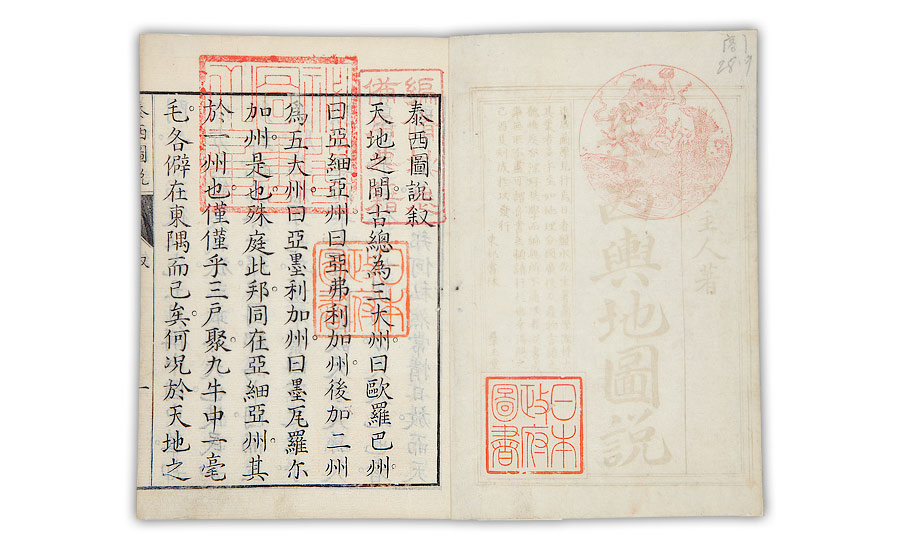 主人著
西輿地圖說
日本
政府
圖書
泰西圖說叙
天地之間。古總為三大州曰歐羅巴州。
曰亞細亞州。曰亞弗利加州。後加二州
爲五大州。曰亞墨利加州。曰墨瓦羅尔
加州。是也。殊庭此邦。同在亞細亞州。其
於一州也。僅僅乎三戶聚。九牛中一毫
毛。各僻在東隅而已矣。何况於天地之
日本
政府
圖書
泰西圖說
叙
一